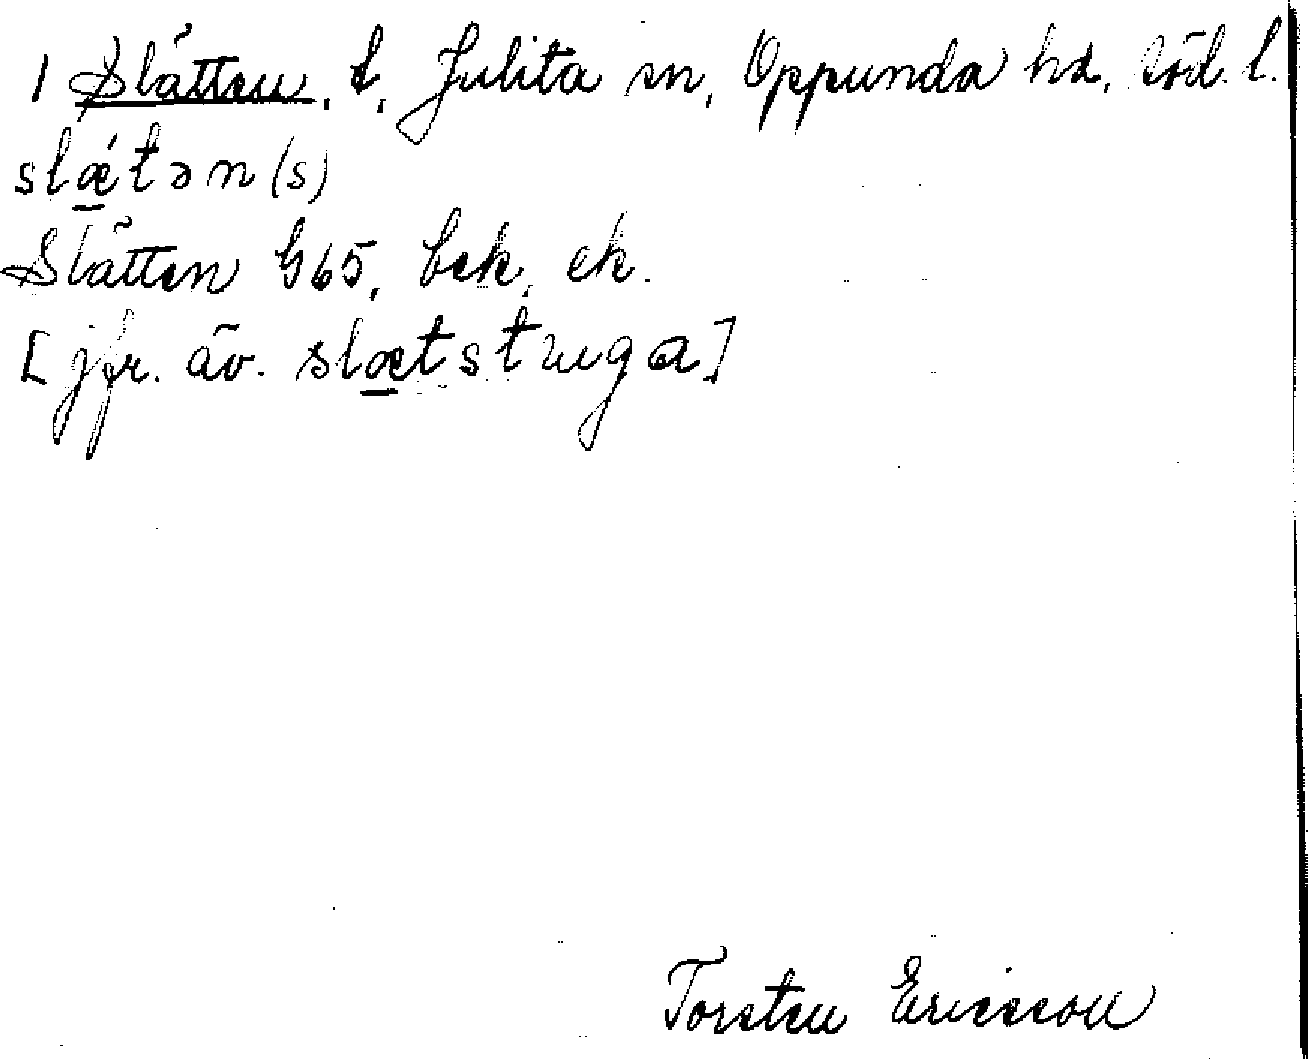 1 Slätten, t, Julita sn, Oppunda hd, Söd. l.
slǽtən(s)
Slätten G65, bek, ek.
[jfr. äv. slætstuga]
Torsten Ericsson